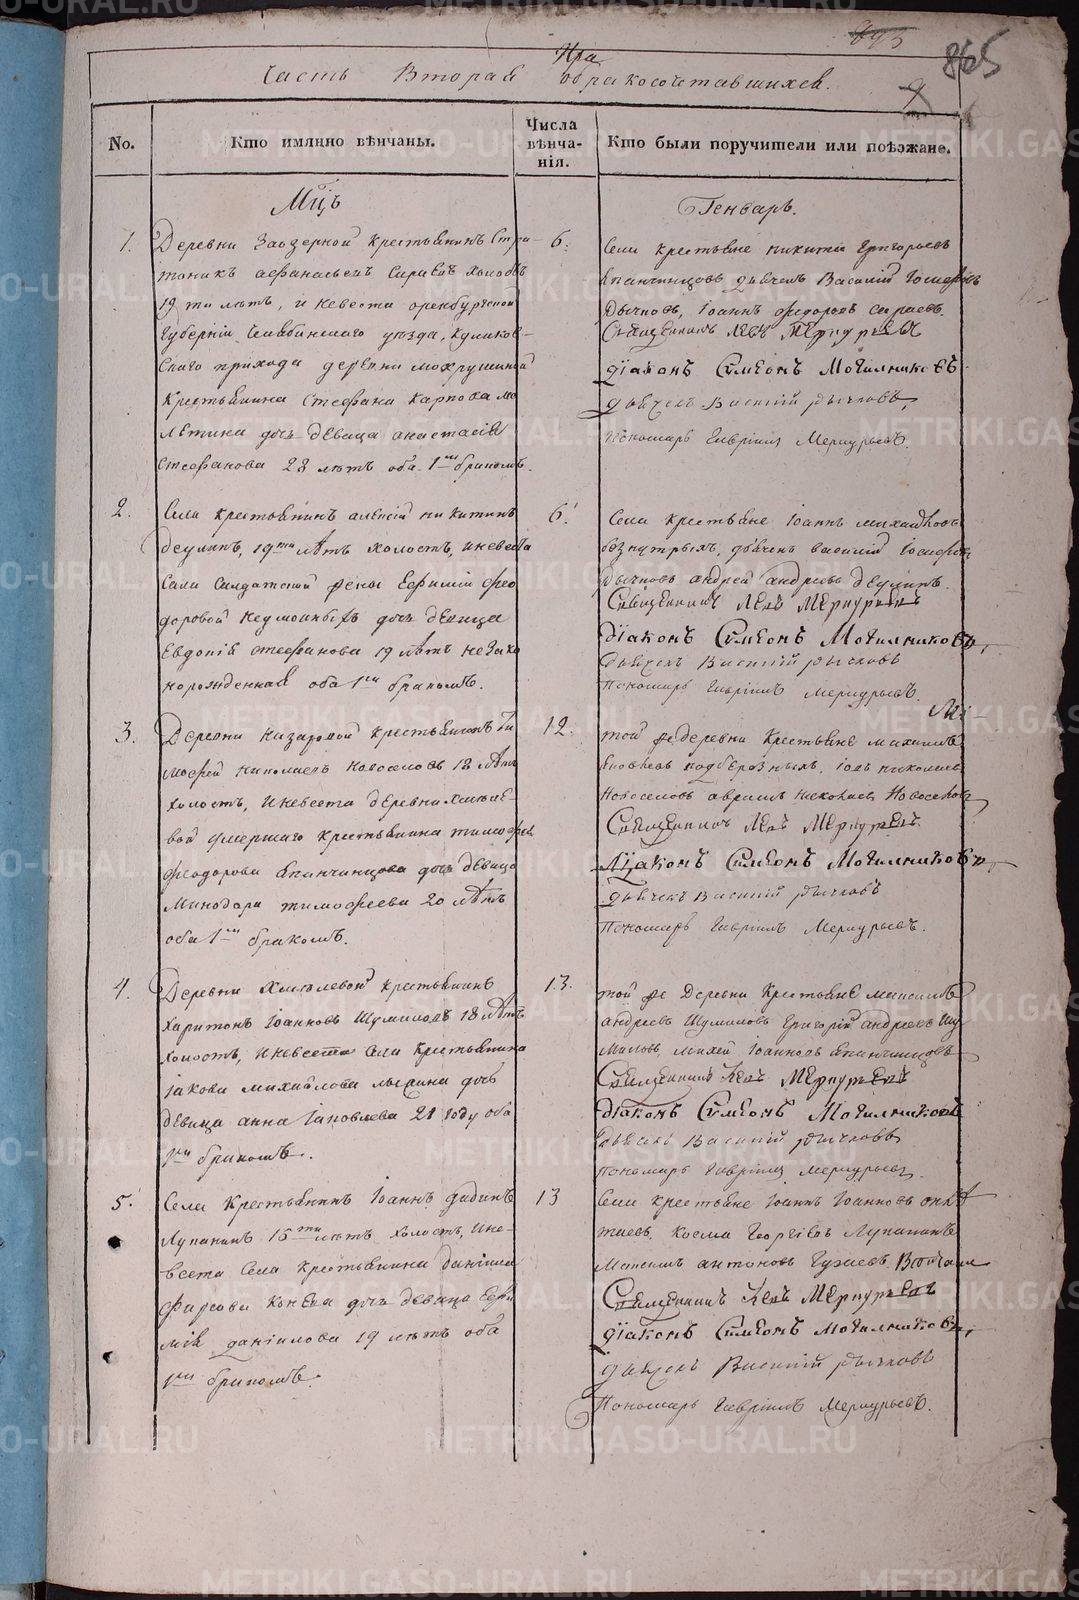 865
Часть Вторая О бракосочетавшихся.
No.
Кто имянно вѣнчаны.
Числа вѣнча-нія.
Кто были поручители или поѣзжане.
Мцъ
Генварь.
1.
Деревни Заозерной крестьянинъ Стра-
тоникъ Афанасьевъ Сараевъ холостъ
19ти лѣтъ, и невеста оренбургской
Губерніи Челябинскаго уезда, Куликов-
скаго прихода деревни мохрушиной
крестьянина Стефана Карпова
дочь девица анастасія
Стефанова 23 лѣтъ оба 1мъ бракомъ.
6.
Села крестьяне никита Григорьевъ
Епанчинцовъ дьячекъ Василий Іосифовъ
Рычковъ, Іоаннъ Федоровъ Сараевъ.
Священникъ Левъ Меркурьевъ
Діаконъ Сѵмеонъ Могильниковъ
дьячекъ Василій Рычковъ,
Пономарь Гавріилъ Меркурьевъ.
2.
Села крестьянинъ алексій никитинъ
Деулинъ, 19ти лѣтъ холостъ, и невеста
Села Салдатской жены Евфиміи Фео-
доровой дочь девица
Евдокія стефанова 19 лѣтъ незако
норожденная оба 1мъ бракомъ.
6.
Села крестьяне Іоаннъ михайловъ
дьячекъ василій Іосифовъ
Рычковъ андрей андреевъ деулинъ.
Священникъ Левъ Меркурьевъ
Діаконъ Сѵмеонъ Могильниковъ,
Дьячекъ Василій Рычковъ
Пономарь Гавріилъ Меркурьевъ.
3.
Деревни назаровой крестьянинъ ти
мофей николаевъ Новоселовъ 18 лѣтъ
холостъ, и невеста деревни хмѣле-
вой умершаго крестьянина тимофея
феодорова Епанчинцова дочь девица
Минодора тимофеева 20 лѣтъ
оба 1мъ бракомъ.
12.
той же деревни крестьяне михаилъ
Яковлевъ подберезныхъ, Іовъ николаевъ
Новоселовъ аврамъ николаевъ Новоселовъ
Священникъ Левъ Меркурьевъ.
Діаконъ Сѵмеонъ Могильниковъ,
дьячекъ Василій Рычковъ
Пономарь Гавріилъ Меркурьевъ.
4.
Деревни Хмѣлевой крестьянинъ
Харитонъ Іоанновъ Шумиловъ 18 лѣтъ
холостъ, и невеста Села крестьянина
Іакова михайлова дочь
девица анна Іаковлева 21 году оба
1мъ бракомъ.
13.
той же Деревни крестьяне максимъ
андреевъ Шумиловъ григорій андреевъ Шу
миловъ, михей Іоанновъ Епанчинцовъ
Священникъ Левъ Меркурьевъ
Діаконъ Сѵмеонъ Могильниковъ
Дьячекъ Василій Рычковъ
Пономарь Гавріилъ Меркурьевъ
5.
Села крестьянинъ Іоаннъ
Лупанинъ 15ти лѣтъ холостъ, и не-
веста Села крестьянина даніила
фирсова Конева дочь девица Евфи
мія даніилова 19 лѣтъ оба
1мъ бракомъ.
13
Села крестьяне Іоаннъ Іоанновъ
Косма Георгіевъ Лупанинъ
Максимъ антоновъ
Священникъ Левъ Меркурьевъ
Діаконъ Сѵмеонъ Могильниковъ,
дьячекъ Василій Рычковъ
Пономарь Гавріилъ Меркурьевъ.
METRIKI.GASO-URAL.RU